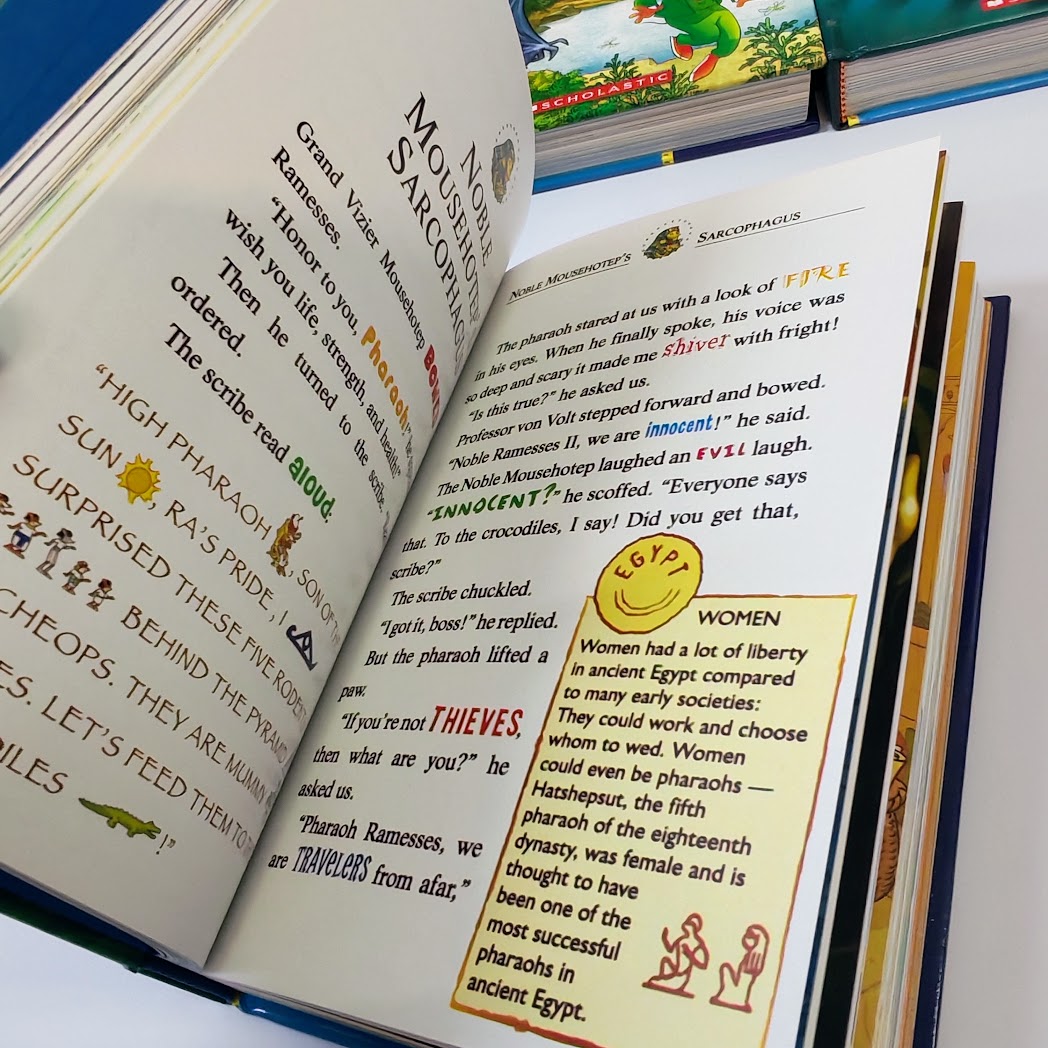 SCHOLASTIC
NOBLE
MOUSEHOTEP'S
SARCOPHAGUS
Grand Vizier Mousehotep
Ramesses.
"Honor to you, Pharaoh!"
wish you life, strength, and health!"
Then he turned to the scribe.
ordered.
The scribe read aloud.
"HIGH PHARAOH, SON OF
SUN, RA'S PRIDE, I
SURPRISED THESE FIVE RODENT
BEHIND THE PYRAMID
CHEOPS. THEY ARE MUMMY
LET'S FEED THEM TO
!"
NOBLE MOUSEHOTEP'S SARCOPHAGUS
The pharaoh stared at us with a look of FIRE
in his eyes. When he finally spoke, his voice was
so deep and scary it made me shiver with fright!
"Is this true?" he asked us.
Professor von Volt stepped forward and bowed.
"Noble Ramesses II, we are innocent!" he said.
The Noble Mousehotep laughed an EVIL laugh.
"INNOCENT?" he scoffed. "Everyone says
that. To the crocodiles, I say! Did you get that,
scribe?"
The scribe chuckled.
"I got it, boss!" he replied.
But the pharaoh lifted a
paw.
"If you're not THIEVES,
then what are you?" he
asked us.
"Pharaoh Ramesses, we
are TRAVELERS from afar,"
EGYPT
WOMEN
Women had a lot of liberty
in ancient Egypt compared
to many early societies:
They could work and choose
whom to wed. Women
could even be pharaohs —
Hatshepsut, the fifth
pharaoh of the eighteenth
dynasty, was female and is
thought to have
been one of the
most successful
pharaohs in
ancient Egypt.